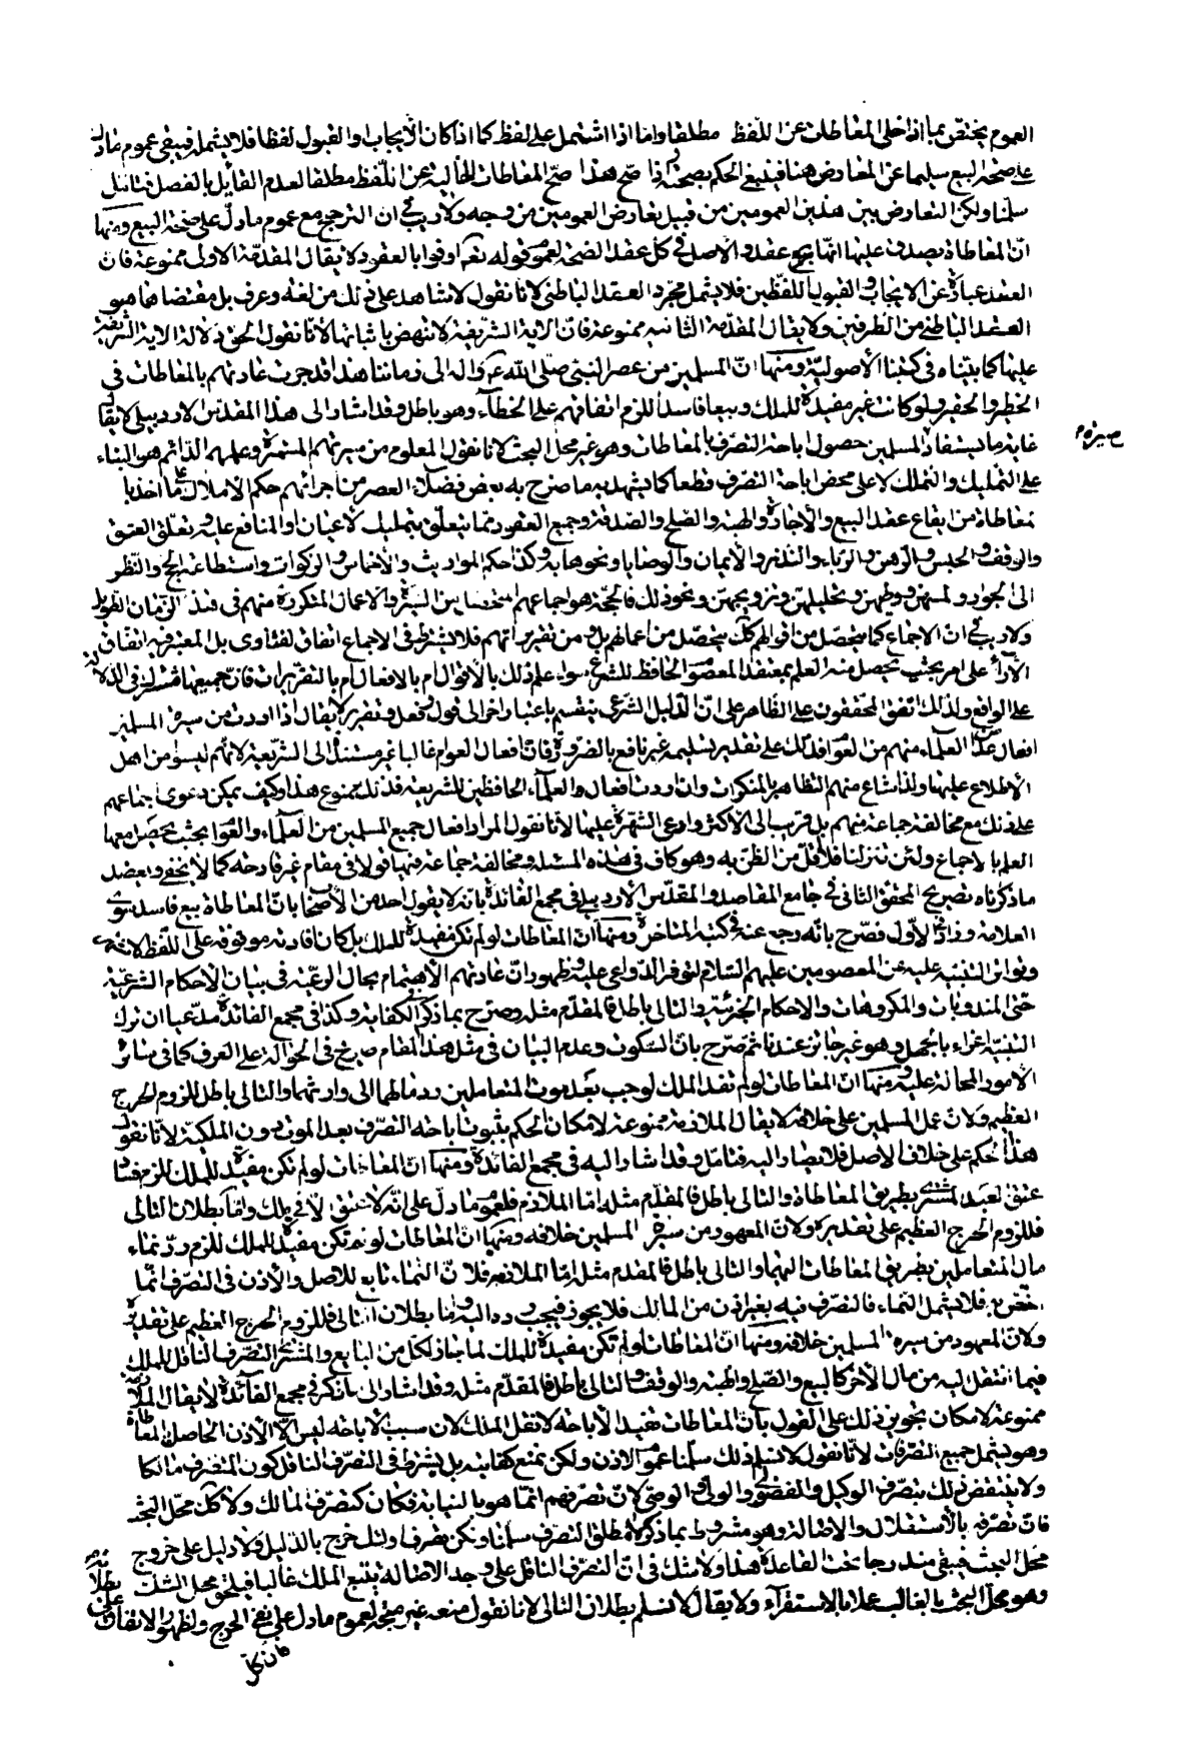 العموم يختص بما اذا خلى المعاطات عن اللفظ مطلقا واما اذا اشتمل على لفظ كما اذا كان الايجاب او القبول لفظا فلا يشمله فيبقى عموم مادل
على صحة البيع سليما عن المعارض هنا فينبغي الحكم بصحته واذا صح هذا صح المعاطات الخالية عن اللفظ مطلقا لعدم القايل بالفصل فتامل
سلمنا ولكن التعارض بين هذين العمومين من قبيل تعارض العمومين من وجه ولا ريب في ان الترجيح مع عموم مادل على صحة البيع ومنها
ان المعاطاة يصدق عليها انها بيع عقد والاصل في كل عقد الصحة لعموم قوله تعم اوفوا بالعقود لا يقال المقدمة الاولى ممنوعة فان
العقد عبارة عن الايجاب والقبول اللفظين فلا يشمل مجرد العقد الباطني لانا نقول لا شاهد على ذلك من لغة وعرف بل مقتضاهما هو
العقد الباطني من الطرفين ولا يقال المقدمة الثانية ممنوعة فان الاية الشريفة لا تنهض باثباتها لانا نقول الحق دلالة الاية الشريفة
عليها كما بيناه في كتبنا الأصولية ومنها ان المسلمين من عصر النبي صلى الله عليه واله الى زماننا هذا قد جرت عادتهم بالمعاطات في
الخطير والحقير فلو كانت غير مفيدة للملك وبيعا فاسدا للزم اتفاقهم على الخطاء وهو باطل وقد اشار الى هذا المقدس الاردبيلي لا يقال
غاية ما يستفاد من المسلمين حصول اباحة التصرف بالمعاطات وهو غير محل البحث لانا نقول المعلوم من سيرتهم المستمرة وعملهم الدائم هو البناء
سيرة م
على التمليك والتملك لا على محض اباحة التصرف قطعا كما يشهد به ما صرح به بعض فضلاء العصر من اجرائهم حكم الاملاك على ما اخذ با
لمعاطاة من ايقاع عقد البيع والاجارة والهبة والصلح والصدقة وجميع العقود مما يتعلق بتمليك الاعيان او المنافع عليه وتعلق العتق
والوقف والحبس والرهن والرباء والنذر والايمان والوصايا ونحوها به وكذا حكم المواريث والاخماس والزكوات واستطاعة الحج والنظر
الى الجواري ولمسهن ووطيهن وتحليلهن وتزويجهن ونحو ذلك فالحجة هو اجماعهم المتحصل من السيرة والاعمال المتكررة منهم في هذه الازمان الطويلة
ولا ريب في ان الاجماع كما يتحصل من اقوالهم كك يتحصل من اعمالهم بل من تقريراتهم فلا يشترط في الاجماع اتفاق الفتاوى بل المعتبر فيه اتفاق
الآراء على امر بحيث يحصل منه العلم بمعتقد المعصوم الحافظ للشرع سواء علم ذلك بالاقوال ام بالافعال ام بالتقريرات فان جميعها مشتركة في الدلالة
على الواقع ولذلك اتفق المحققون على الظاهر على ان الدليل الشرعي ينقسم باعتبار اخر الى قول وفعل وتقرير لا يقال اذا اردت من سيرة المسلمين
افعال غير العلماء منهم من العوام فذلك على تقدير تسليمه غير نافع بالضرورة فان افعال العوام غالبا غير مستندة الى الشريعة لانهم ليسوا من اهل
الاطلاع عليها ولذا شاع منهم التظاهر بالمنكرات وان اردت افعال العلماء الحافظين للشريعة فذلك ممنوع هذا وكيف يمكن دعوى اجماعهم
على ذلك مع مخالفة جماعة منهم بل قرب الى الاكثر وادعى الشهرة عليها لانا نقول المراد افعال جميع المسلمين من العلماء والعوام بحيث يحصل معها
العلم بالاجماع ولئن تنزلنا فلا اقل من الظن به وهو كاف في هذه المسئلة ومخالفة جماعة فيها قولا في مقام غير قادحة كما لا يخفى ويعضد
ما ذكرناه تصريح المحقق الثاني في جامع المقاصد والمقدس الاردبيلي في مجمع الفائدة بانه لا يقول احد من الاصحاب بان المعاطاة بيع فاسد سوى
العلامة وزاد الاول فصرح بانه رجع عنه في كتبه المتاخرة ومنها ان المعاطات لو لم تكن مفيدة للملك بل كان افادته موقوفة على اللفظ لاشتهر
وتواتر التنبيه عليه عن المعصومين عليهم السلام لتوفر الدواعي عليه وظهور ان عادتهم الاهتمام بحال الرعية في بيان الاحكام الشرعية
حتى المندوبات والمكروهات والاحكام الجزئية والتالي باطل فالمقدم مثله وصرح بما ذكر في الكفاية وكذا في مجمع الفائدة مدعيا ان ترك
التنبيه اغراء بالجهل وهو غير جائز عندنا ثم صرح بان السكوت وعدم البيان في مثل هذا المقام صريح في الحوالة على العرف كما في سائر
الامور المحالة عليه ومنها ان المعاطات لو لم تفد الملك لوجب بعد موت المتعاملين رد مالهما الى وارثهما والتالي باطل للزوم الحرج
العظيم ولان عمل المسلمين على خلافه لا يقال الملازمة ممنوعة لامكان الحكم بثبوت اباحة التصرف بعد الموت بدون الملكية لانا نقول
هذا الحكم على خلاف الأصل فلا يصار اليه فتامل وقد اشار اليه في مجمع الفائدة ومنها ان المعاطات لو لم تكن مفيدة للملك للزم فساد
عتق العبد المشترى بطريق المعاطاة والتالي باطل فالمقدم مثله اما الملازمة فلعموم مادل على انه لا عتق الا في ملك واما بطلان التالي
فللزوم الحرج العظيم على تقديره ولان المعهود من سيرة المسلمين خلافه ومنها ان المعاطات لو لم تكن مفيدة للملك للزم رد نماء
مال المتعاملين بطريق المعاطات اليهما والتالي باطل فالمقدم مثله اما الملازمة فلان النماء تابع للاصل والاذن في التصرف انما
اختص به فلا يشمل النماء فالتصرف فيه بغير اذن من المالك فلا يجوز فيجب رده اليه واما بطلان التالي فللزوم الحرج العظيم على تقديره
ولان المعهود من سيرة المسلمين خلافه ومنها ان المعاطات لو لم تكن مفيدة للملك لما جاز لكل من البايع والمشتري التصرف الناقل للملك
فيما انتقل اليه من مال الآخر كالبيع والصلح والهبة والوقف والتالي باطل فالمقدم مثله وقد اشار الى ما ذكر في مجمع الفائدة لا يقال الملازمة
ممنوعة لامكان تجويز ذلك على القول بان المعاطات تفيد الاباحة لا تنقل الملك لان سبب الاباحة ليس الا الاذن الحاصل بالمعاطاة
وهو يشمل جميع التصرفات لانا نقول لا نسلم ذلك سلمنا عموم الاذن ولكن نمنع كفايته بل يشترط في التصرف الناقل كون المتصرف مالكا
ولا ينتقض ذلك بتصرف الوكيل والفضولي والولي والوصي لان تصرفهم انما هو بالنيابة فكان كتصرف المالك ولا كك محل البحث
فان تصرفه بالاستقلال والاصالة وهو مشروط بما ذكر لا مطلق التصرف سلمنا ولكن تصرف اولئك خرج بالدليل ولا دليل على خروج
محل البحث فيبقى مندرجا تحت القاعدة هذا ولا شك في ان التصرف الناقل على وجه الاصالة يتبع الملك غالبا فيلحق محل الشك
وهو محل البحث بالغالب عملا بالاستقراء ولا يقال لا نسلم بطلان التالي لانا نقول منعه غير متجه لعموم مادل على نفي الحرج ولظهور الاتفاق على
بطلانه
فان كل